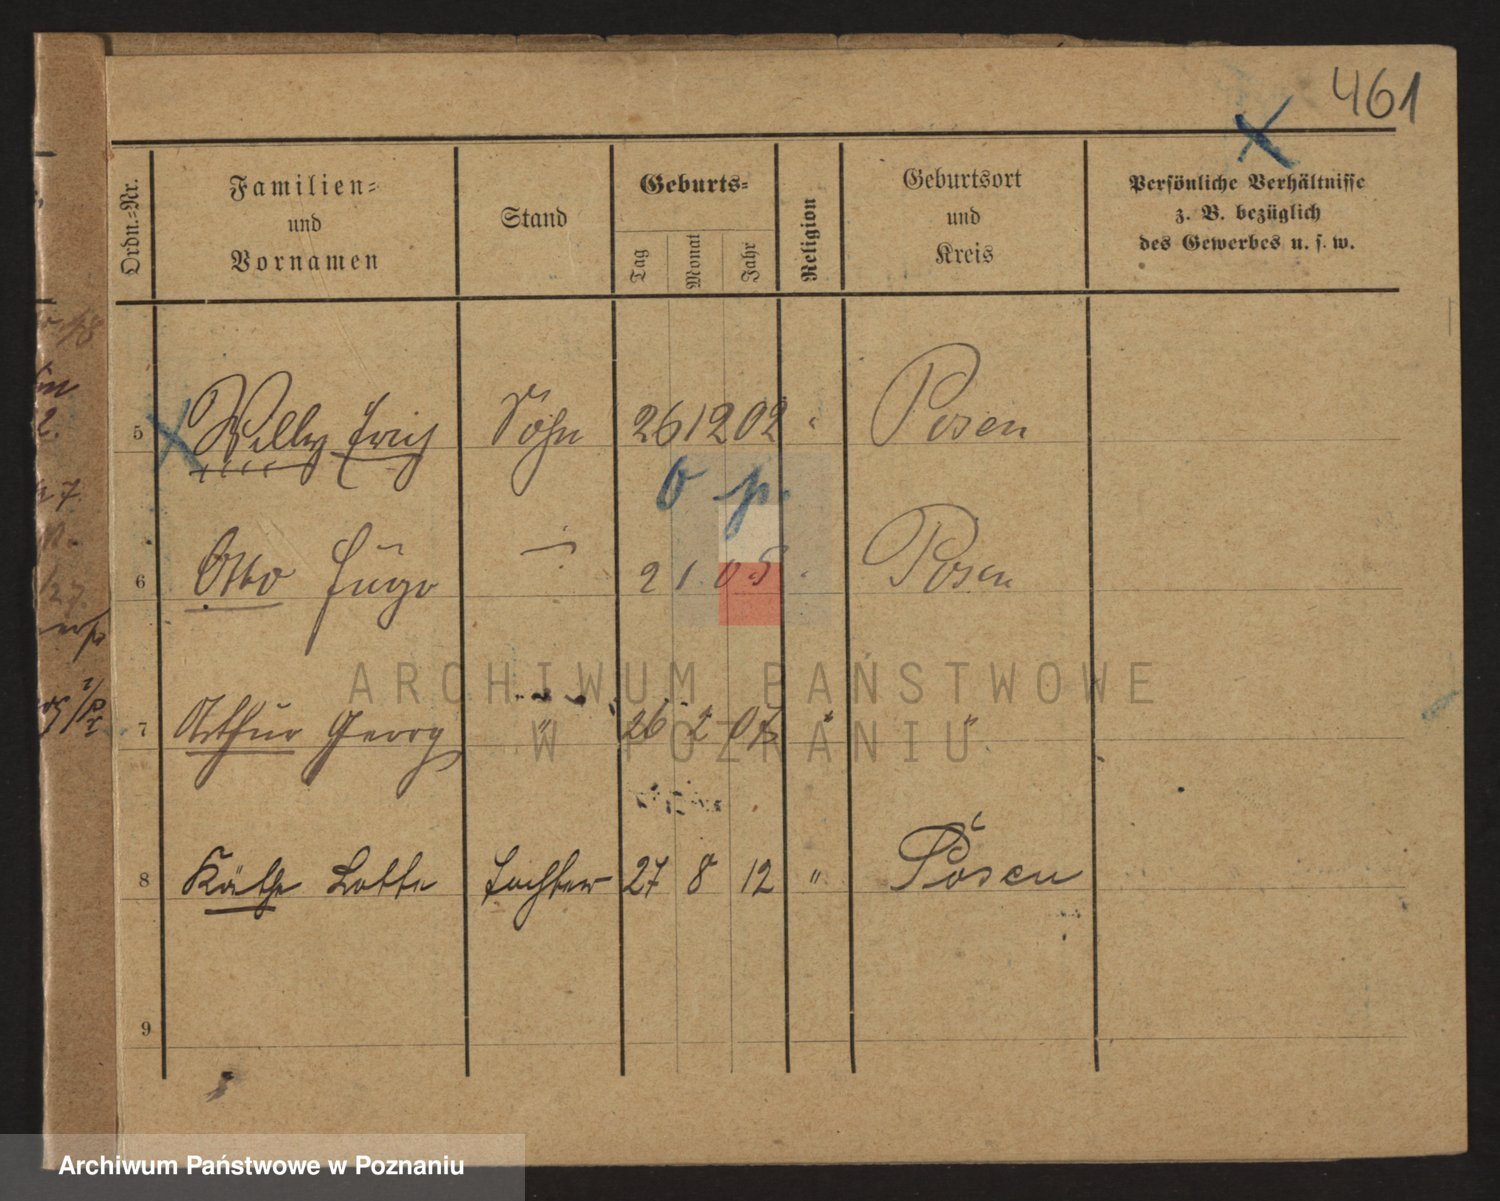 461
Ordn.-Nr.
Familien-
und
Vornamen
Stand
Geburts-
Tag
Monat
Jahr
Religion
Geburtsort
und
Kreis
Persönliche Verhältnisse
z. B. bezüglich
des Gewerbes u. s. w.
5 Willy Erich Sohn 26 12 02 " Posen
6 Otto Hugo 2 1 05 Posen
7 Arthur Georg " 26 2 07 " "
8 Käthe Lotte Tochter 27 8 12 " Posen
9
ARCHIWUM PAŃSTWOWE
W POZNANIU
Archiwum Państwowe w Poznaniu